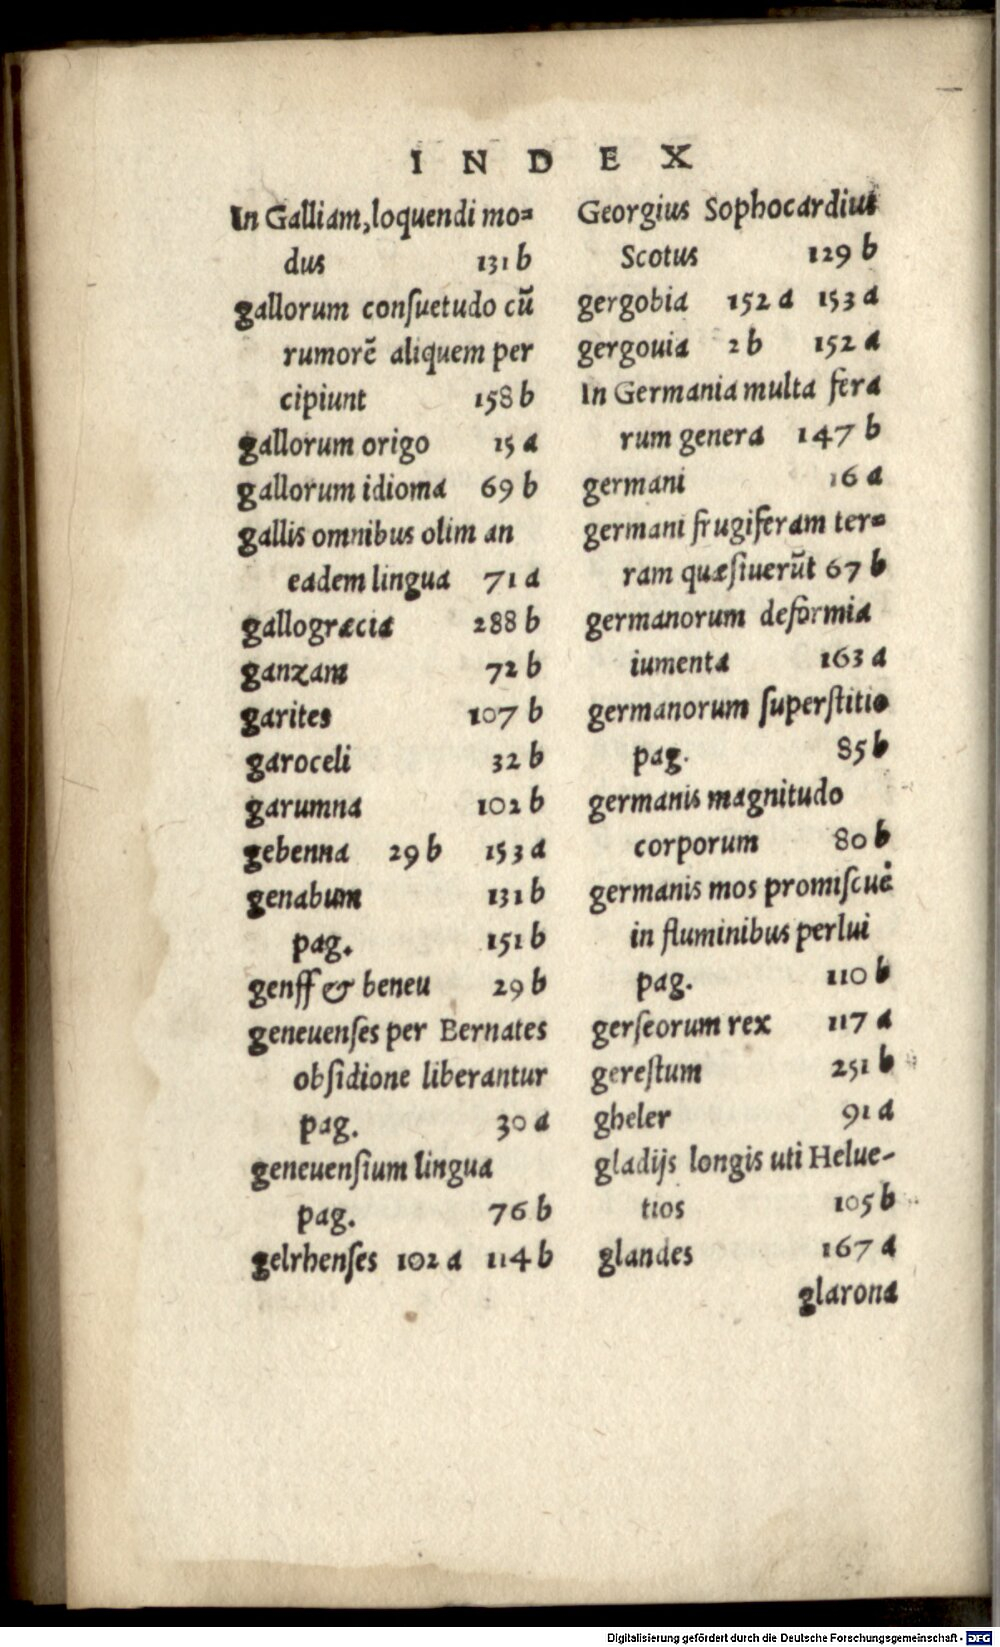 INDEX
In Galliam, loquendi mo=
dus 131 b
gallorum conſuetudo cū
rumorē aliquem per
cipiunt 158 b
gallorum origo 15 a
gallorum idioma 69 b
gallis omnibus olim an
eadem lingua 71 a
gallogræcia 288 b
ganzam 72 b
garites 107 b
garoceli 32 b
garumna 102 b
gebenna 29 b 153 a
genabum 131 b
pag. 151 b
genff & beneu 29 b
geneuenſes per Bernates
obſidione liberantur
pag. 30 a
geneuenſium lingua
pag. 76 b
gelrhenſes 102 a 114 b
Georgius Sophocardius
Scotus 129 b
gergobia 152 a 153 a
gergouia 2 b 152 a
In Germania multa fera
rum genera 147 b
germani 16 a
germani frugiferam ter=
ram quæſiuerūt 67 b
germanorum deformia
iumenta 163 a
germanorum ſuperſtitio
pag. 85 b
germanis magnitudo
corporum 80 b
germanis mos promiſcuè
in fluminibus perlui
pag. 110 b
gerſeorum rex 117 a
gereſtum 251 b
gheler 91 a
gladijs longis uti Helue-
tios 105 b
glandes 167 a
glarona
Digitalisierung gefördert durch die Deutsche Forschungsgemeinschaft - DFG